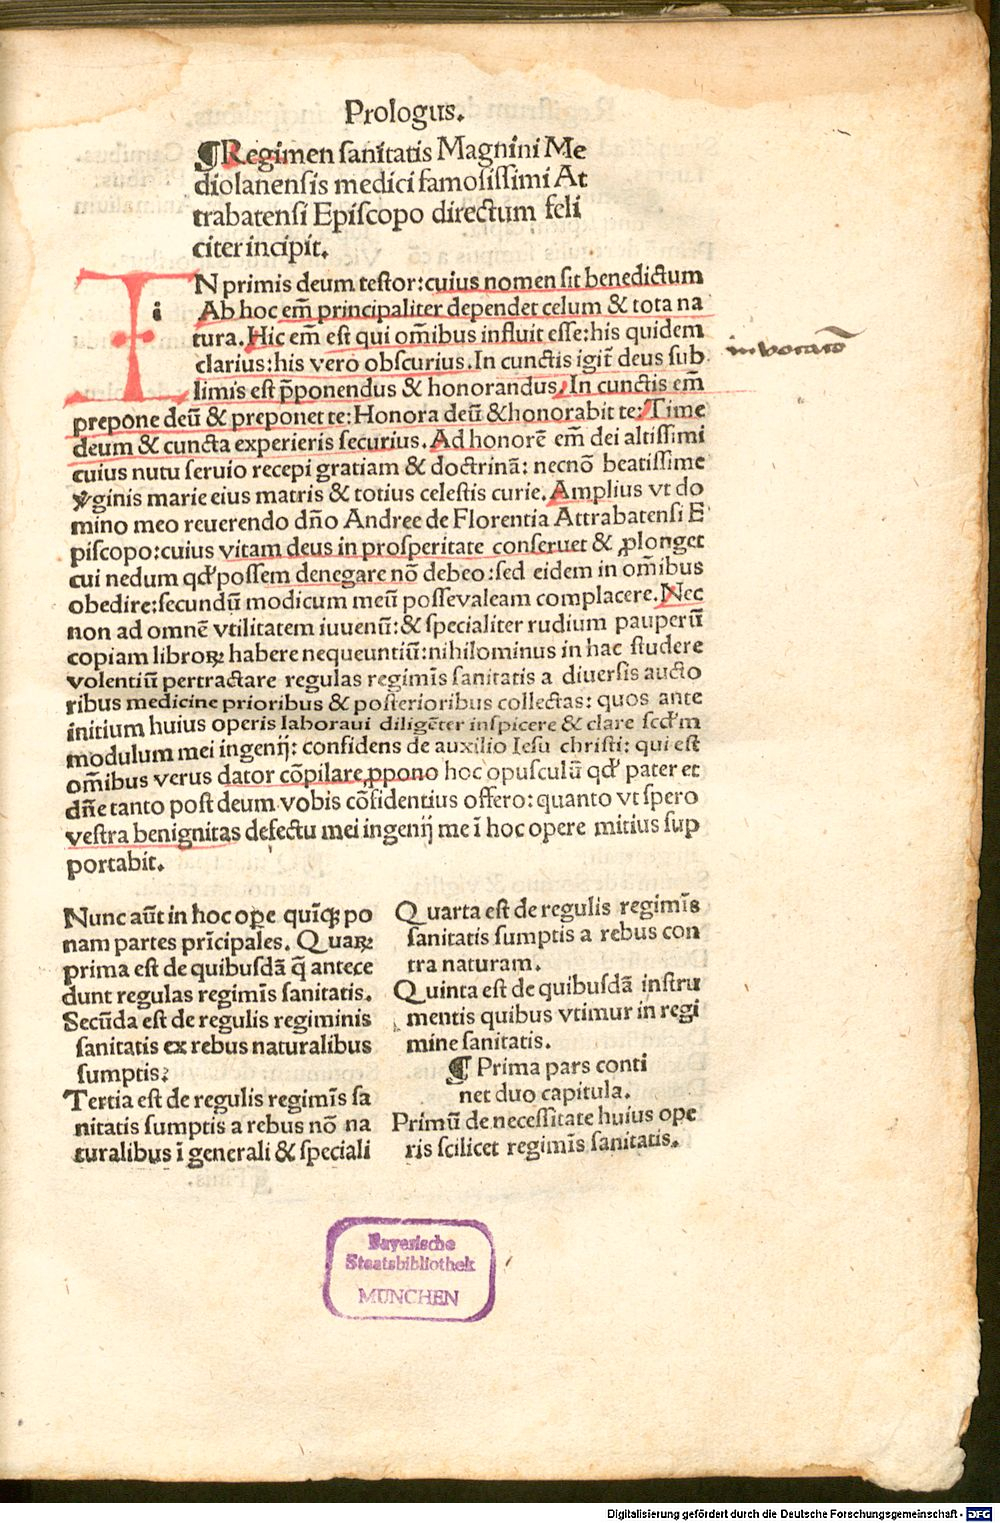 Prologus.
¶Regimen sanitatis Magnini Me
diolanensis medici famosissimi At
trabatensi Episcopo directum feli
citer incipit.
i
N primis deum testor:cuius nomen sit benedictum
Ab hoc em̄ principaliter dependet celum & tota na
tura. Hic em̄ est qui om̄ibus influit esse:his quidem
clarius:his vero obscurius. In cunctis igit̄ deus sub
limis est p̄ponendus & honorandus. In cunctis em̄
prepone deū & preponet te: Honora deū & honorabit te: Time
deum & cuncta experieris securius. Ad honorē em̄ dei altissimi
cuius nutu seruio recepi gratiam & doctrinā: necnō beatissime
v̓ginis marie eius matris & totius celestis curie. Amplius vt do
mino meo reuerendo dn̄o Andree de Florentia Attrabatensi E
piscopo:cuius vitam deus in prosperitate conseruet & ꝓlonget
cui nedum qd̓ possem denegare nō debeo:sed eidem in om̄ibus
obedire:secundū modicum meū posse valeam complacere. Nec
non ad omnē vtilitatem iuuenū:& specialiter rudium pauperū
copiam libroꝝ habere nequeuntiū:nihilominus in hac studere
volentiū pertractare regulas regimīs sanitatis a diuersis aucto
ribus medicine prioribus & posterioribus collectas: quos ante
initium huius operis laboraui diligēter inspicere & clare scd̓m
modulum mei ingenij: confidens de auxilio Iesu christi: qui est
om̄ibus verus dator cōpilare ꝓpono hoc opusculū qd̓ pater et
dn̄e tanto post deum vobis cōfidentius offero: quanto vt spero
vestra benignitas defectu mei ingenij me ī hoc opere mitius sup
portabit.
inuocatō
Nunc aūt in hoc oꝑe quīqꝫ po
nam partes prīcipales. Quaꝝ
prima est de quibusdā q̄ antece
dunt regulas regimīs sanitatis.
Secūda est de regulis regiminis
sanitatis ex rebus naturalibus
sumptis:
Tertia est de regulis regimīs sa
nitatis sumptis a rebus nō na
turalibus ī generali & speciali
Quarta est de regulis regimīs
sanitatis sumptis a rebus con
tra naturam.
Quinta est de quibusdā instru
mentis quibus vtimur in regi
mine sanitatis.
¶ Prima pars conti
net duo capitula.
Primū de necessitate huius ope
ris scilicet regimīs sanitatis.
Bayerische
Staatsbibliothek
MÜNCHEN
Digitalisierung gefördert durch die Deutsche Forschungsgemeinschaft - DFG